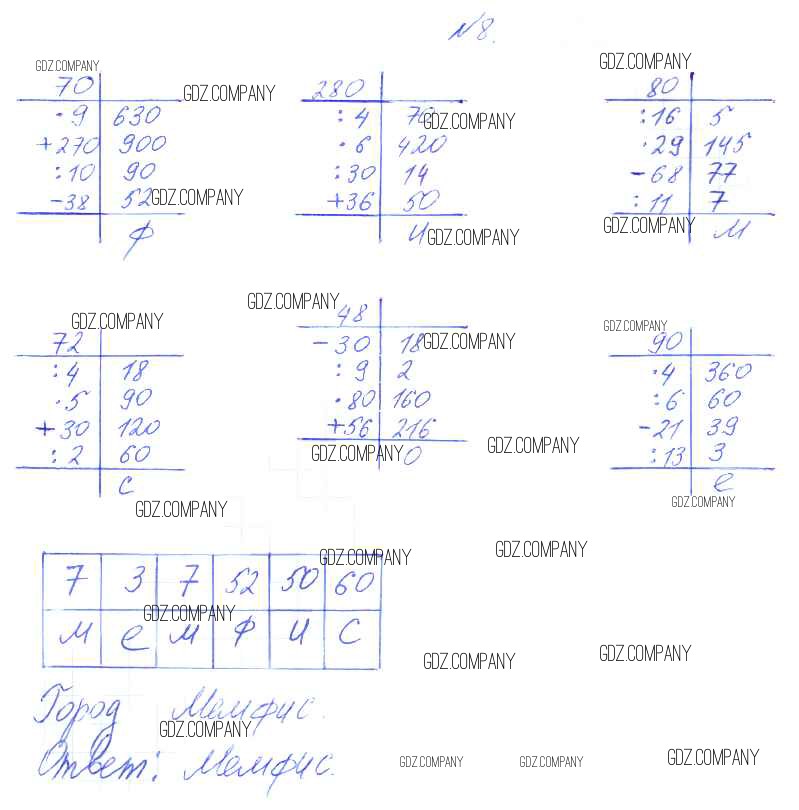 №8.
GDZ.COMPANY GDZ.COMPANY
70 280 80
GDZ.COMPANY
·9 630 :4 70 :16 5
GDZ.COMPANY
+270 900 ·6 420 ·29 145
:10 90 :30 14 -68 77
-38 52 +36 50 :11 7
GDZ.COMPANY
Ф И М
GDZ.COMPANY GDZ.COMPANY
GDZ.COMPANY
48
GDZ.COMPANY GDZ.COMPANY
72 -30 18 90
GDZ.COMPANY
:4 18 :9 2 ·4 360
·5 90 ·80 160 :6 60
+30 120 +56 216 -21 39
:2 60 О :13 3
GDZ.COMPANY GDZ.COMPANY
С е
GDZ.COMPANY GDZ.COMPANY
GDZ.COMPANY GDZ.COMPANY
7 3 7 52 50 60
GDZ.COMPANY
М е М Ф И С
GDZ.COMPANY GDZ.COMPANY
Город Мемфис.
GDZ.COMPANY
Ответ: Мемфис.
GDZ.COMPANY GDZ.COMPANY GDZ.COMPANY